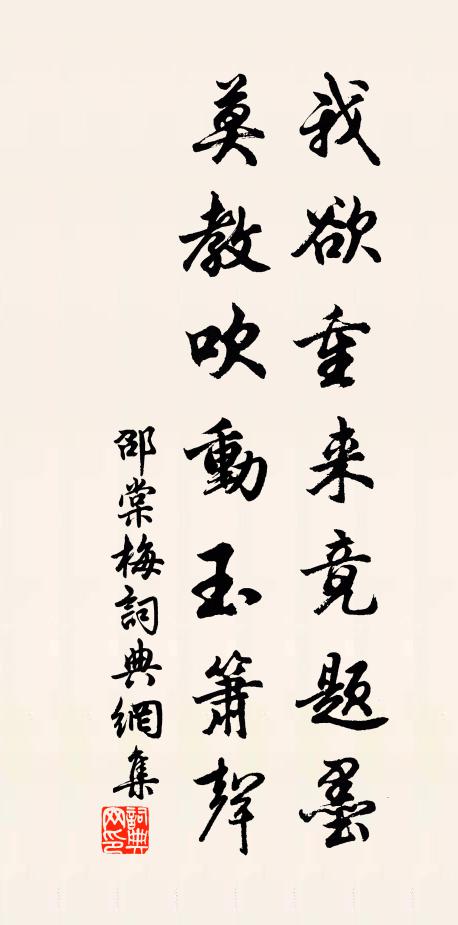 我欲重来竟題墨
莫教吹動玉簫聲
邵棠梅詞典網集
詞典网印